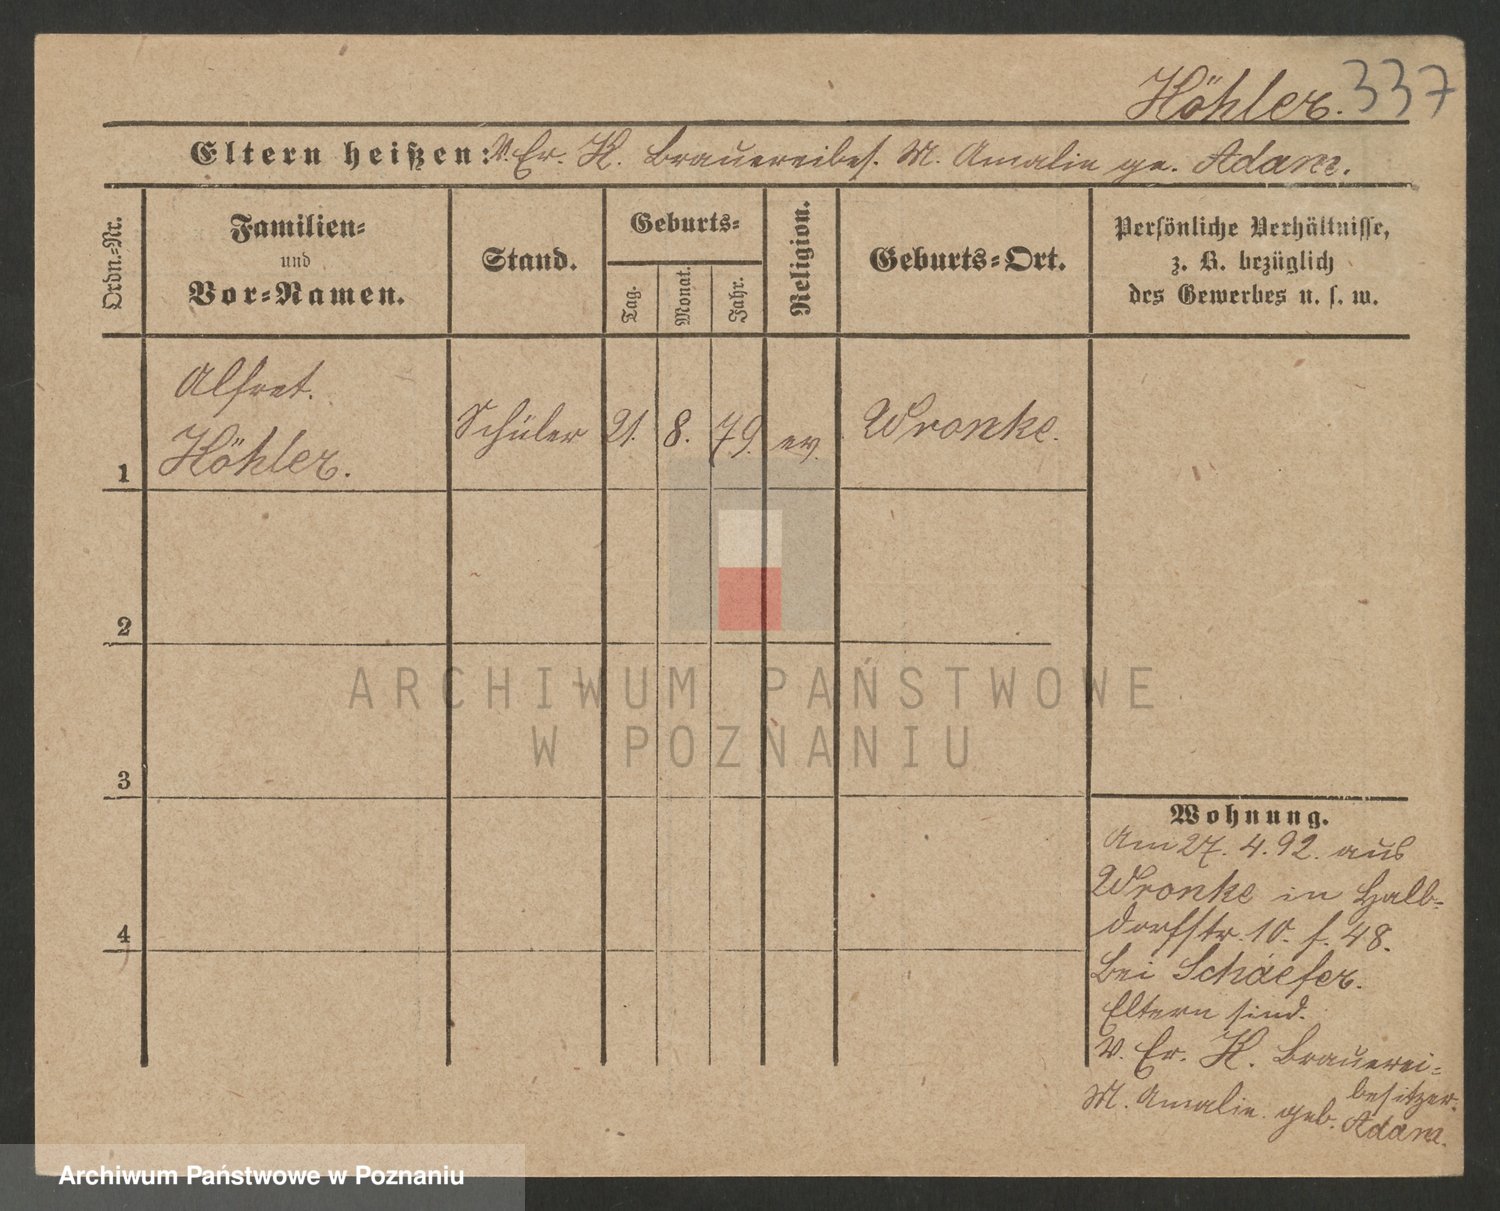 Höhler. 337
Eltern heißen: V. Er. H. Brauereibes. M. Amalie ge. Adam.
Ordn.-Nr.
Familien-
und
Vor-Namen.
Stand.
Geburts-
Tag.
Monat.
Jahr.
Religion.
Geburts-Ort.
Persönliche Verhältnisse,
z. B. bezüglich
des Gewerbes u. s. w.
Alfret.
1 Höhler. Schüler 21. 8. 79. ev. Wronke.
2
ARCHIWUM PAŃSTWOWE
W POZNANIU
3
4
Wohnung.
Am 27. 4. 92. aus
Wronke in Halb-
dorfstr. 10. f. 48.
bei Schaefer.
Eltern sind.
V. Er. H. Brauerei-
besitzer.
M. Amalie geb. Adam.
Archiwum Państwowe w Poznaniu